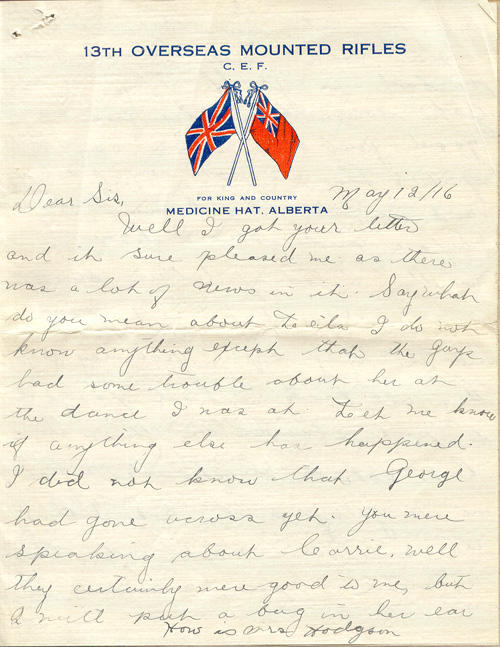 13TH OVERSEAS MOUNTED RIFLES
C. E. F.
FOR KING AND COUNTRY
MEDICINE HAT, ALBERTA
May 12/16
Dear Sis,
Well I got your letter
and it sure pleased me as there
was a lot of news in it. Say what
do you mean about Leila I do not
know anything except that the guys
had some trouble about her at
the dance I was at Let me know
if anything else has happened.
I did not know that George
had gone across yet. You were
speaking about Carrie, well
they certainly were good to me, but
I will put a bug in her ear
How is Mrs Hodgson